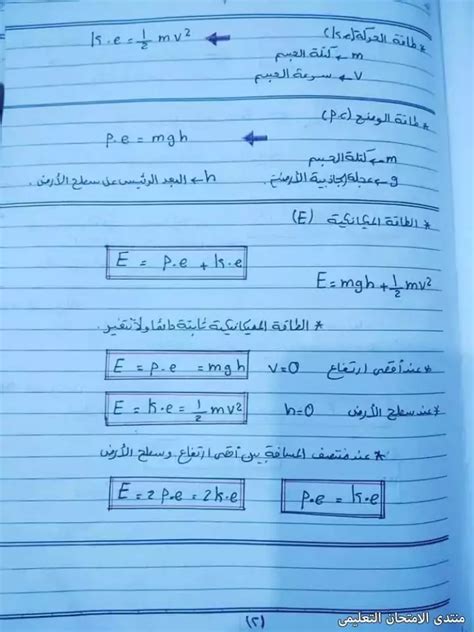 * طاقة الحركة (k.e) ← k.e = ½ mv²
m ← كتلة الجسم
v ← سرعة الجسم
* طاقة الوضع (p.e)
← p.e = mgh
m ← كتلة الجسم
g ← عجلة الجاذبية الأرضية. h ← البعد الرأسى عن سطح الأرض.
* الطاقة الميكانيكية (E)
E = p.e + k.e
E = mgh + ½ mv²
* الطاقة الميكانيكية ثابتة دائمًا ولا تتغير.
* عند أقصى ارتفاع v=0 E = p.e = mgh
* عند سطح الأرض h=0 E = k.e = ½ mv²
* عند منتصف المسافة بين أقصى ارتفاع وسطح الأرض
p.e = k.e E = 2p.e = 2k.e
(٢)
منتدى الامتحان التعليمى